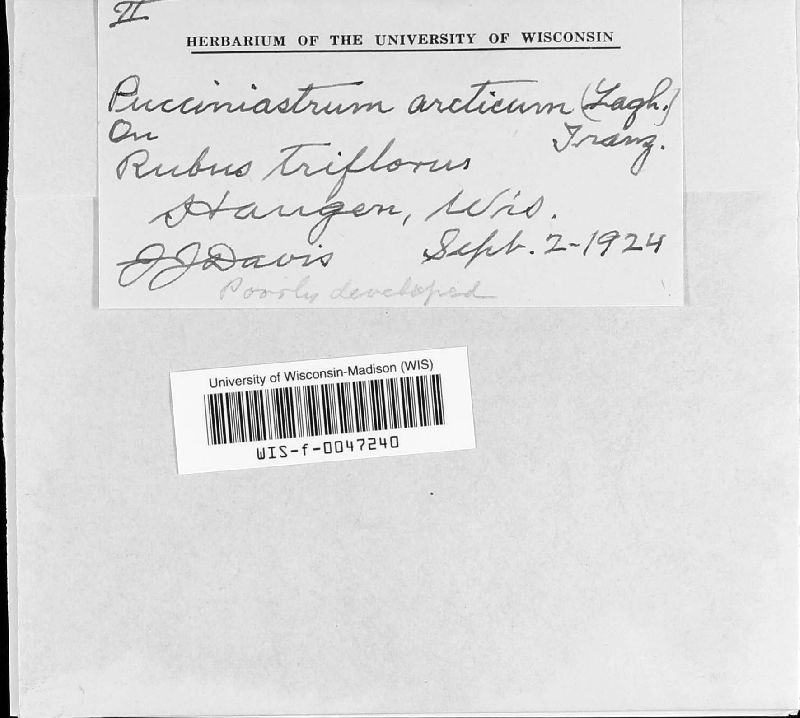 II
HERBARIUM OF THE UNIVERSITY OF WISCONSIN
Pucciniastrum arcticum (Lagh.)
On Tranz.
Rubus triflorus
Haugen, Wis.
JJDavis Sept. 2-1924
Poorly developed
University of Wisconsin-Madison (WIS)
WIS-f-0047240